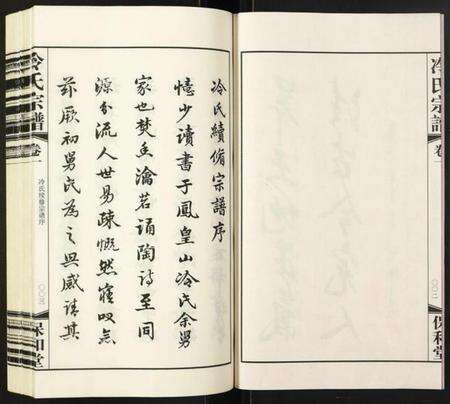 冷氏續脩宗譜序
憶少讀書于鳳皇山冷氏余舅
家也焚香瀹茗誦陶詩至同
源分流人世易疎慨然寤叹念
茲厥初舅氏為之興感請其
冷氏宗譜
卷一
冷氏续修宗谱序
〇〇三
保和堂
冷氏宗譜
卷一
〇〇二
保和堂